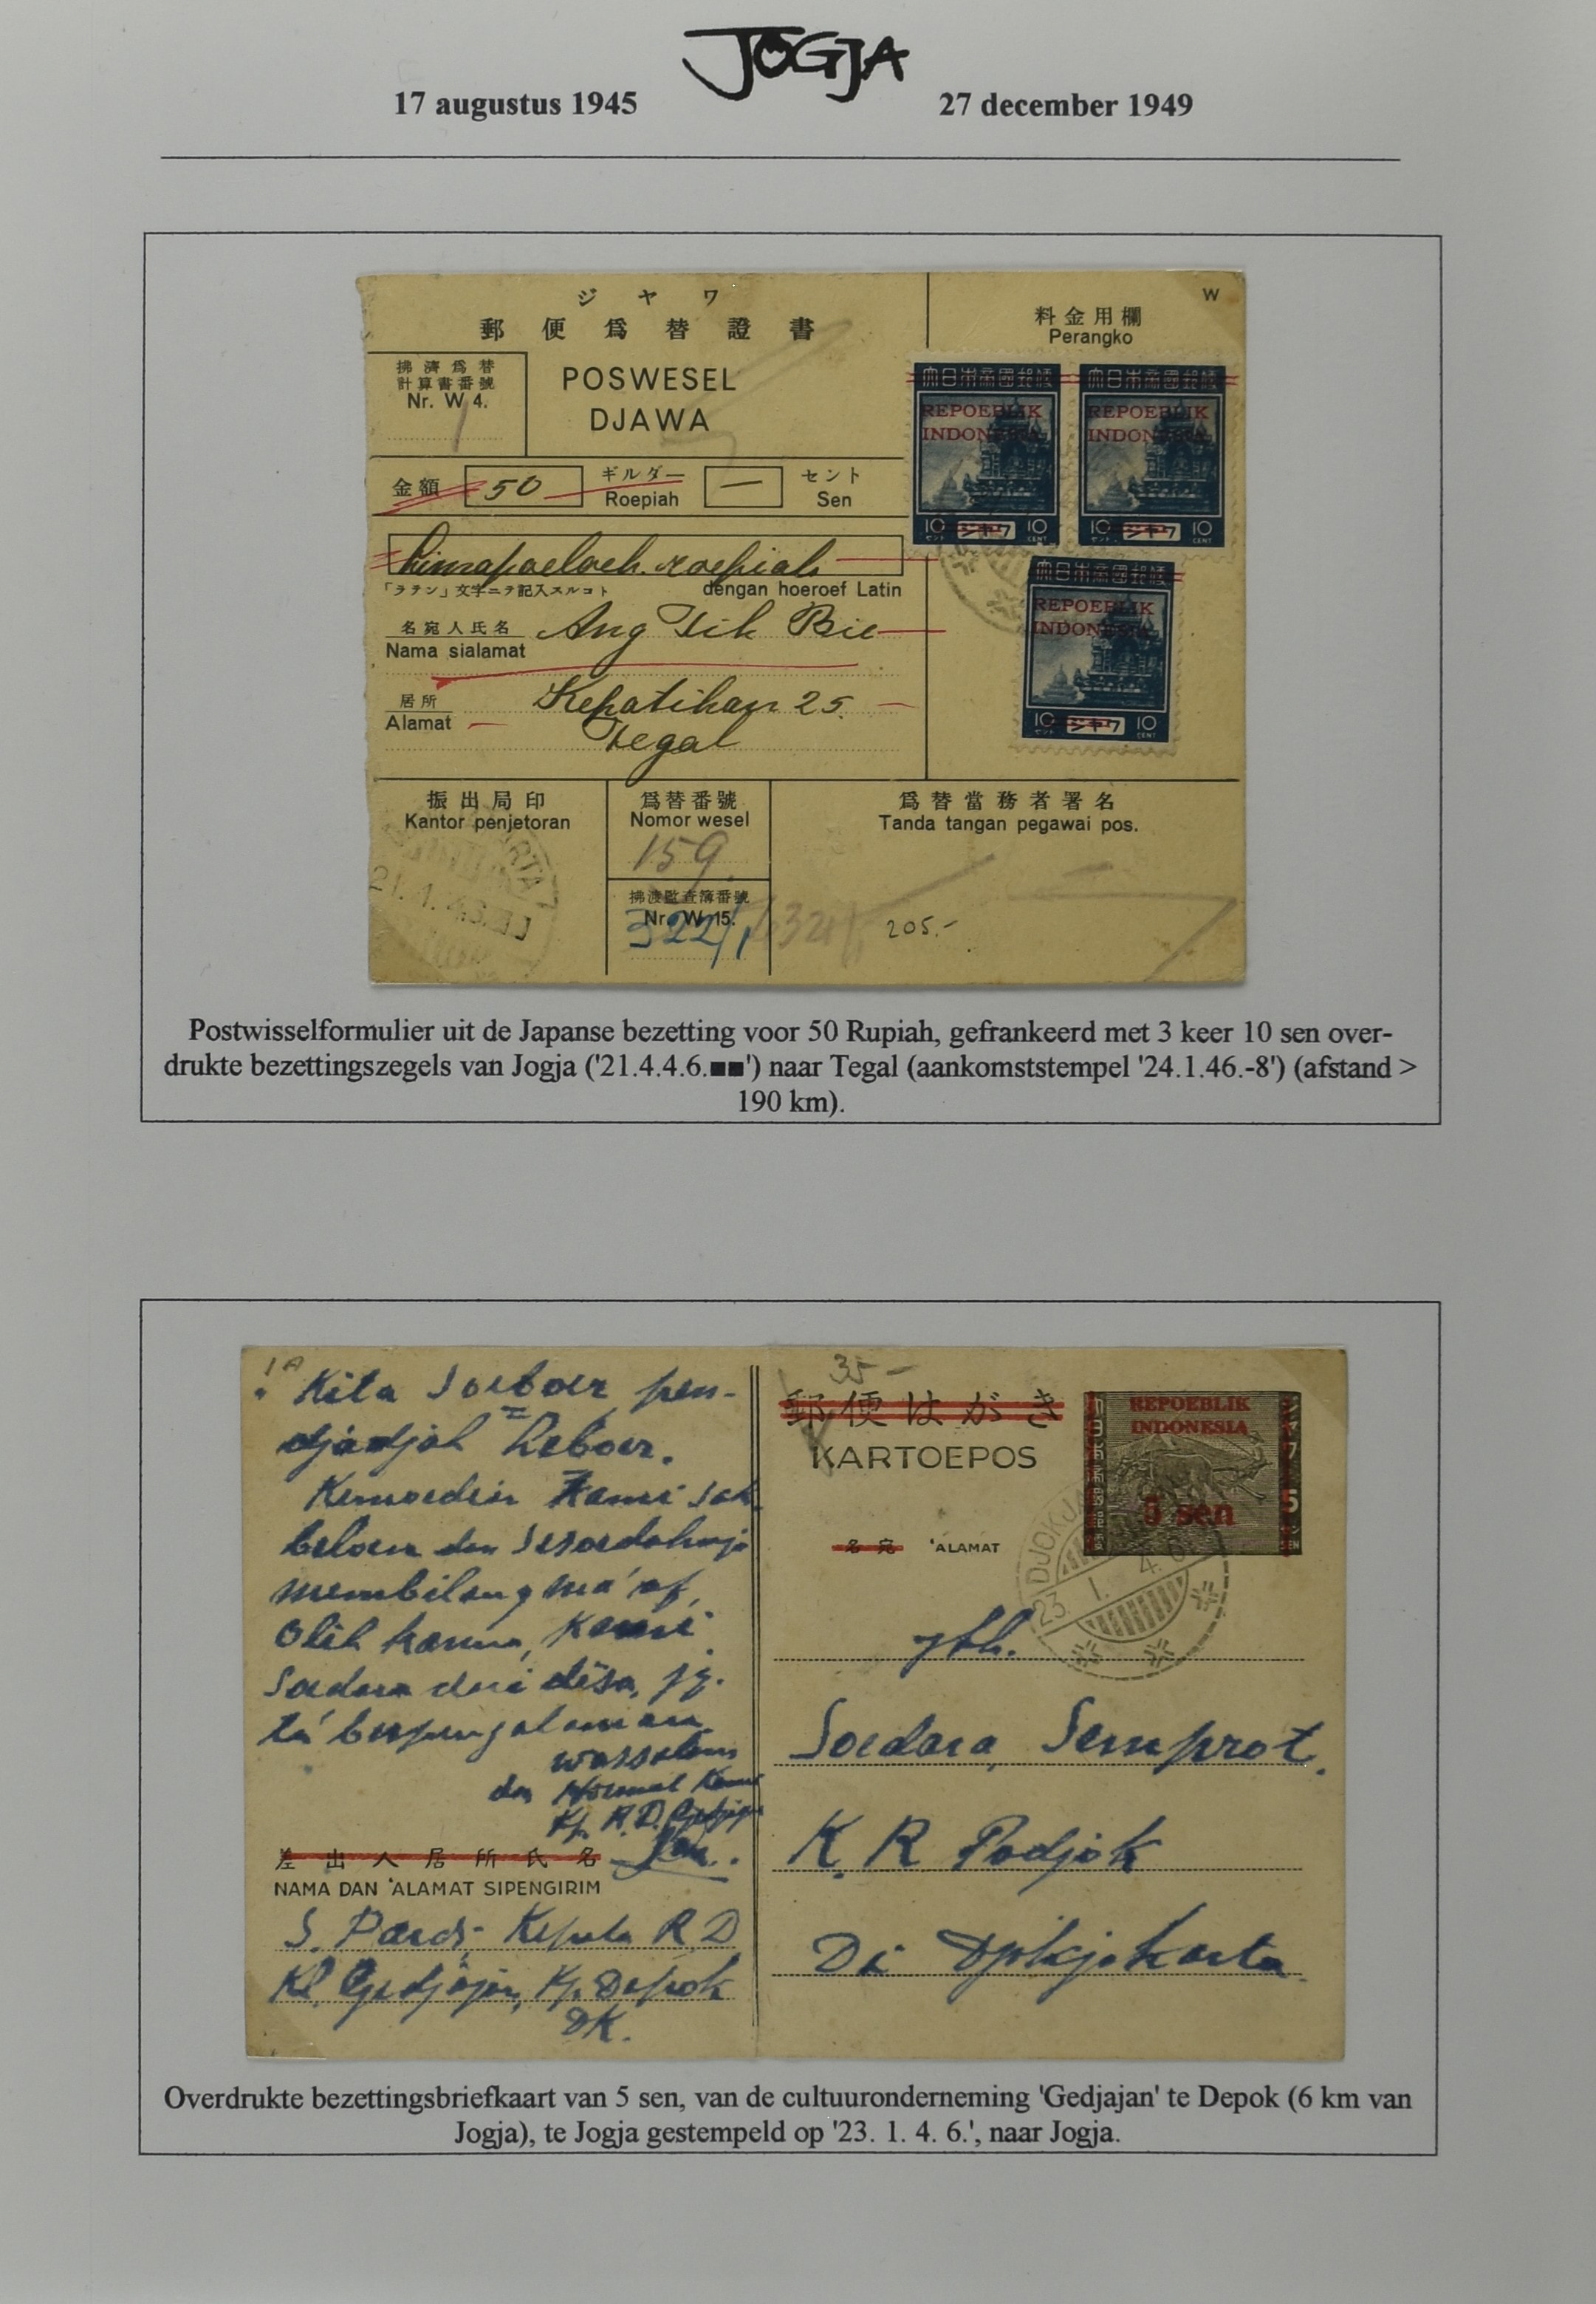 JOGJA
17 augustus 1945
27 december 1949
ジヤワ
郵便爲替證書
POSWESEL
DJAWA
拂濟爲替
計算書番號
Nr. W 4.
料金用欄
Perangko
W
REPOEBLIK
INDONESIA
10 ジャワ 10
セント CENT
REPOEBLIK
INDONESIA
10 ジャワ 10
セント CENT
REPOEBLIK
INDONESIA
10 ジャワ 10
セント CENT
金額 50 ギルダー — セント
Roepiah Sen
Limapoeloeh roepiah
「ラテン」文字ニテ記入スルコト dengan hoeroef Latin
名宛人氏名 Ang Tik Bie
Nama sialamat
居所 Kepatihan 25.
Alamat
Tegal
振出局印
Kantor penjetoran
爲替番號
Nomor wesel
159
拂渡監査簿番號
Nr. W 15.
322/1
爲替當務者署名
Tanda tangan pegawai pos.
205.-
Postwisselformulier uit de Japanse bezetting voor 50 Rupiah, gefrankeerd met 3 keer 10 sen over-
drukte bezettingszegels van Jogja ('21.4.4.6.■■') naar Tegal (aankomststempel '24.1.46.-8') (afstand >
190 km).
1A
Kita Soeboer pen-
djadjah Leboer.
Kemoedin Kami seb
beloem dan Sesoedahnja
membilang ma'af,
Olih karna, Kami
Soedara dari desa, jg.
ta' berpengalaman
wassalam
dan Hormat Kami
Kp. R.D. Gedjajan
差出人居所氏名
NAMA DAN 'ALAMAT SIPENGIRIM
S. Pardi Kepala R.D
Kl. Gedjajan, Kp. Depok
DK.
35-
郵便はがき
KARTOEPOS
REPOEBLIK
INDONESIA
3 sen
5
SEN
名宛 'ALAMAT
DJOKJA
23 1. 4. 6
yth.
Soedara, Semprot.
K. R Podjok
Di Djokjakarta.
Overdrukte bezettingsbriefkaart van 5 sen, van de cultuuronderneming 'Gedjajan' te Depok (6 km van
Jogja), te Jogja gestempeld op '23. 1. 4. 6.', naar Jogja.